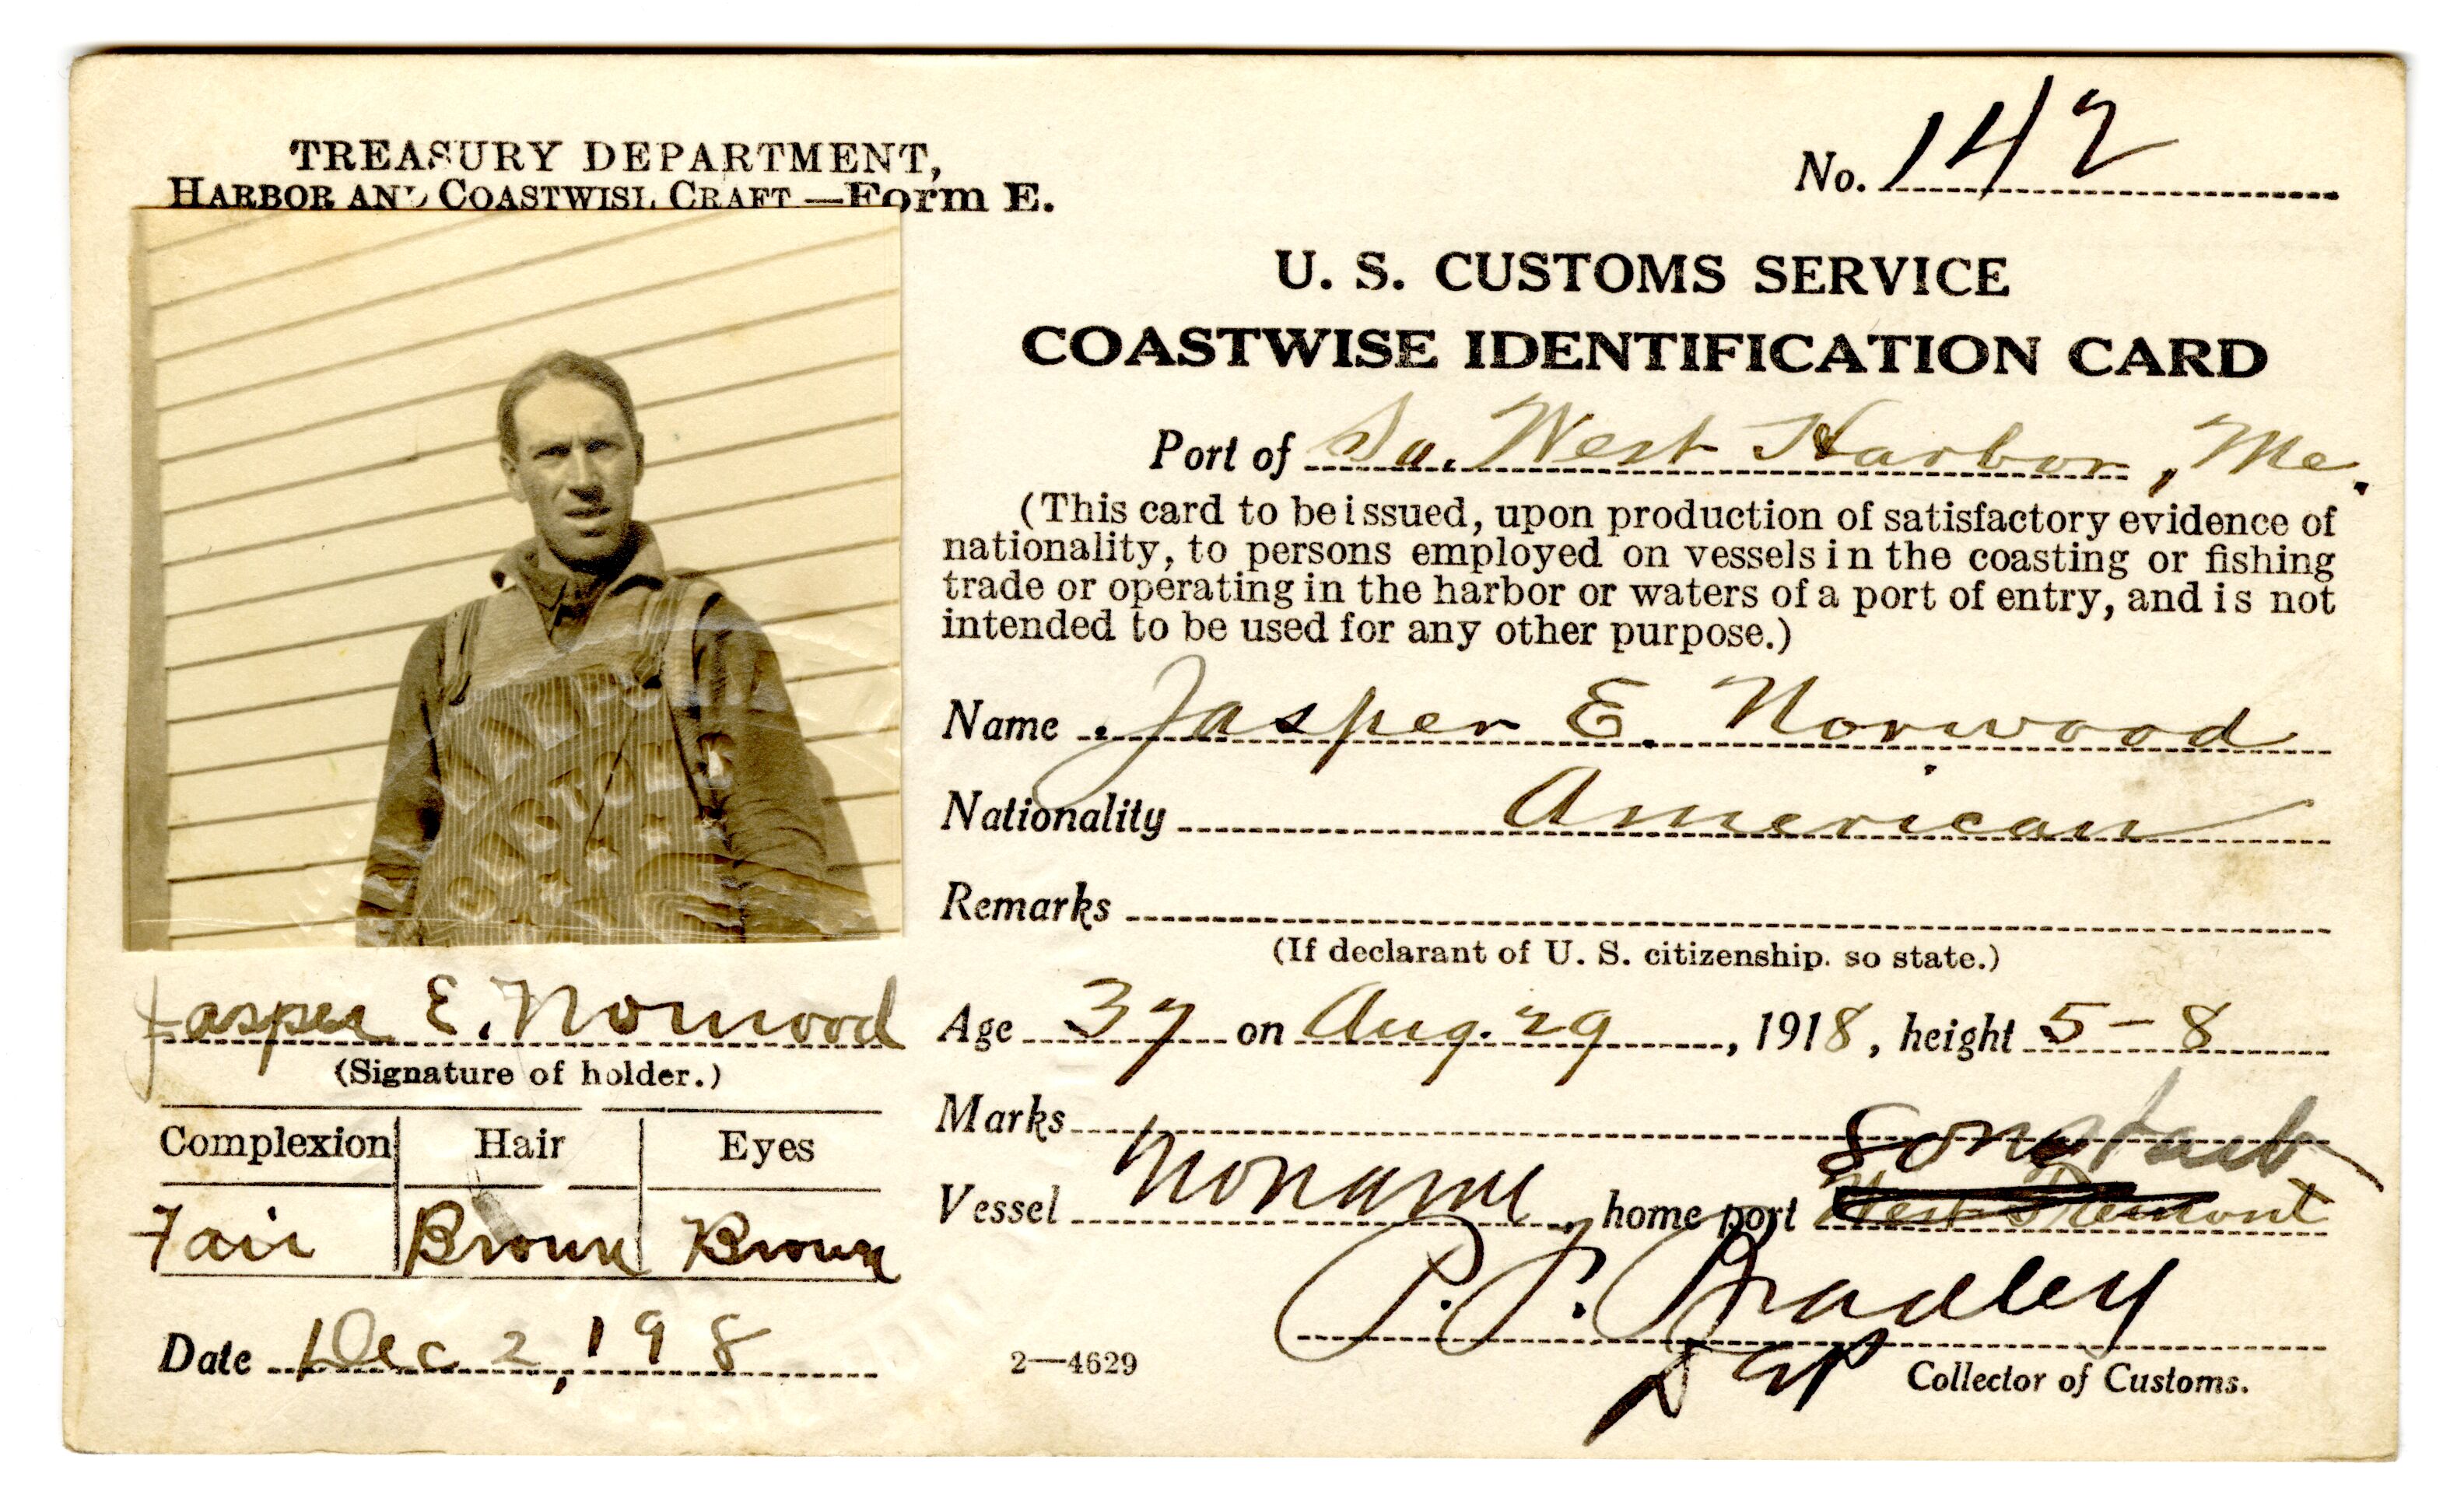 TREASURY DEPARTMENT,
HARBOR AND COASTWISE CRAFT—Form E.
No. 142
U. S. CUSTOMS SERVICE
COASTWISE IDENTIFICATION CARD
Port of So. West Harbor, Me.
(This card to be issued, upon production of satisfactory evidence of
nationality, to persons employed on vessels in the coasting or fishing
trade or operating in the harbor or waters of a port of entry, and is not
intended to be used for any other purpose.)
Name Jasper E. Norwood
Nationality American
Remarks
(If declarant of U. S. citizenship. so state.)
Age 37 on Aug. 29, 1918, height 5-8
Marks
Vessel Noname, home port West Tremont
P. P. Bradley
Dep Collector of Customs.
CUSTOMS
Jasper E. Norwood
(Signature of holder.)
Complexion Hair Eyes
Fair Brown Brown
Date Dec 2, 198
2—4629